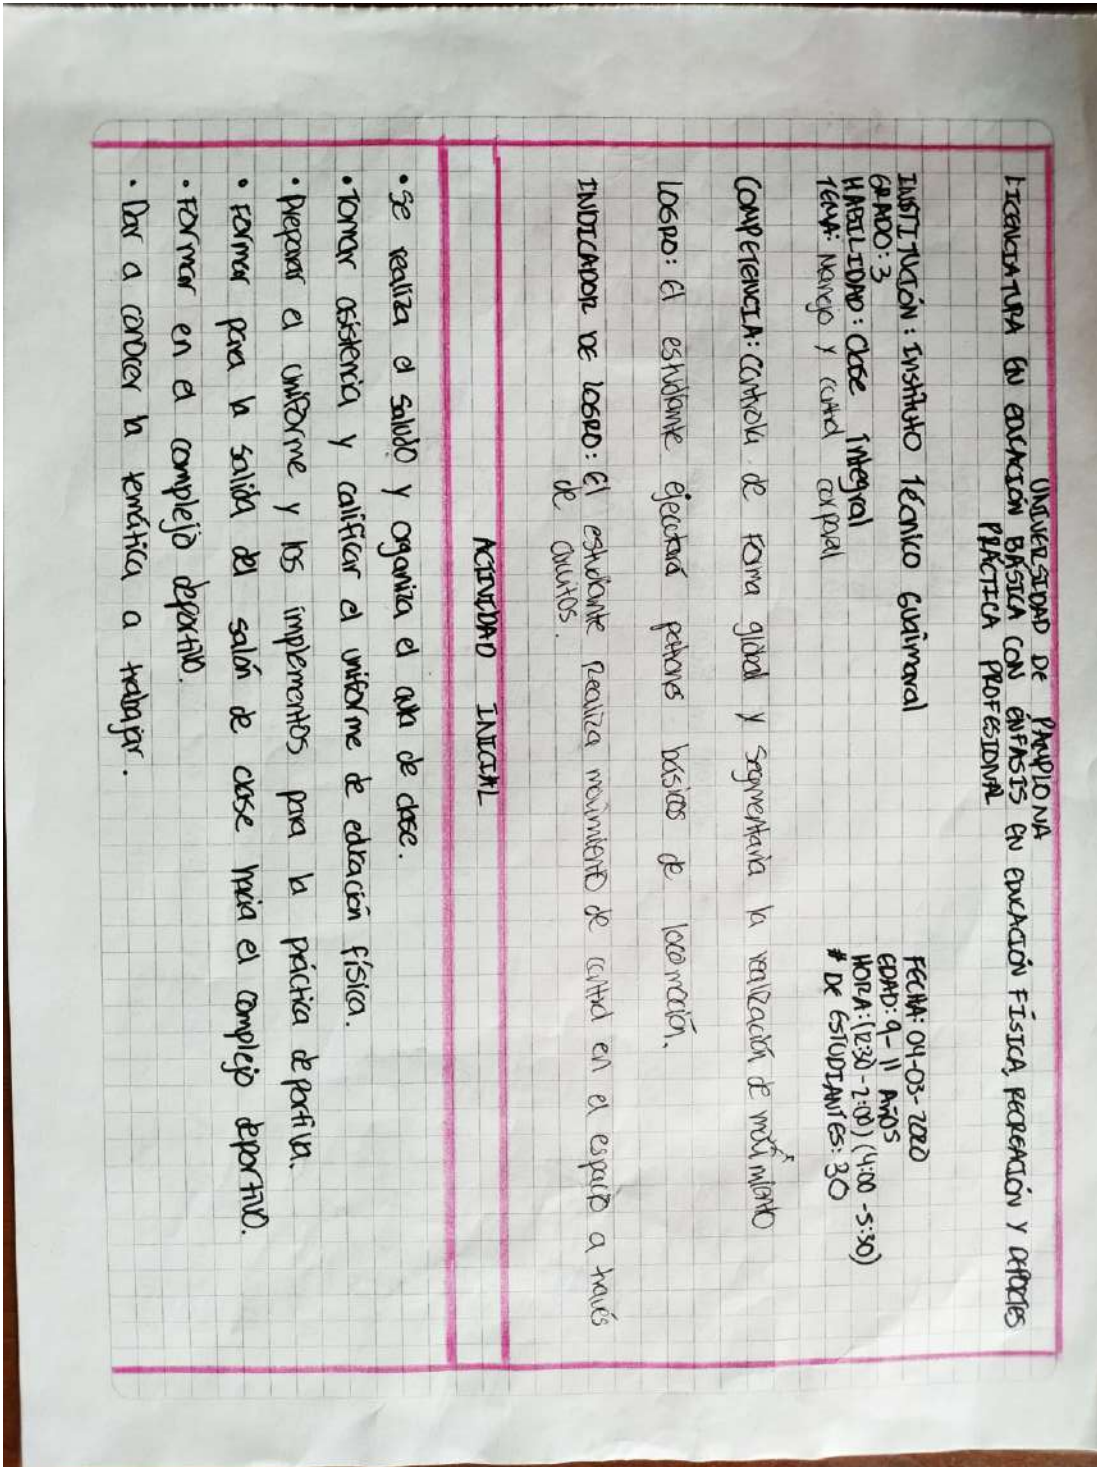 UNIVERSIDAD DE PAMPLONA
LICENCIATURA EN EDUCACIÓN BÁSICA CON ÉNFASIS EN EDUCACIÓN FÍSICA, RECREACIÓN Y DEPORTES
PRÁCTICA PROFESIONAL
INSTITUCIÓN: Instituto Técnico Guaimaral
FECHA: 04-03-2020
GRADO: 3
EDAD: 9-11 AÑOS
HABILIDAD: Clase Integral
HORA: (12:30-2:00) (4:00-5:30)
TEMA: Manejo y control corporal
# DE ESTUDIANTES: 30
COMPETENCIA: Controla de forma global y segmentaria la realización de movimiento
LOGRO: El estudiante ejecutará patrones básicos de locomoción.
INDICADOR DE LOGRO: El estudiante Realiza movimiento de control en el espacio a través
de circuitos.
ACTIVIDAD INICIAL
• Se realiza el saludo y organiza el aula de clase.
• Tomar asistencia y calificar el uniforme de educación física.
• Preparar el uniforme y los implementos para la práctica deportiva.
• Formar para la salida del salón de clase hacia el complejo deportivo.
• Formar en el complejo deportivo.
• Dar a conocer la temática a trabajar.